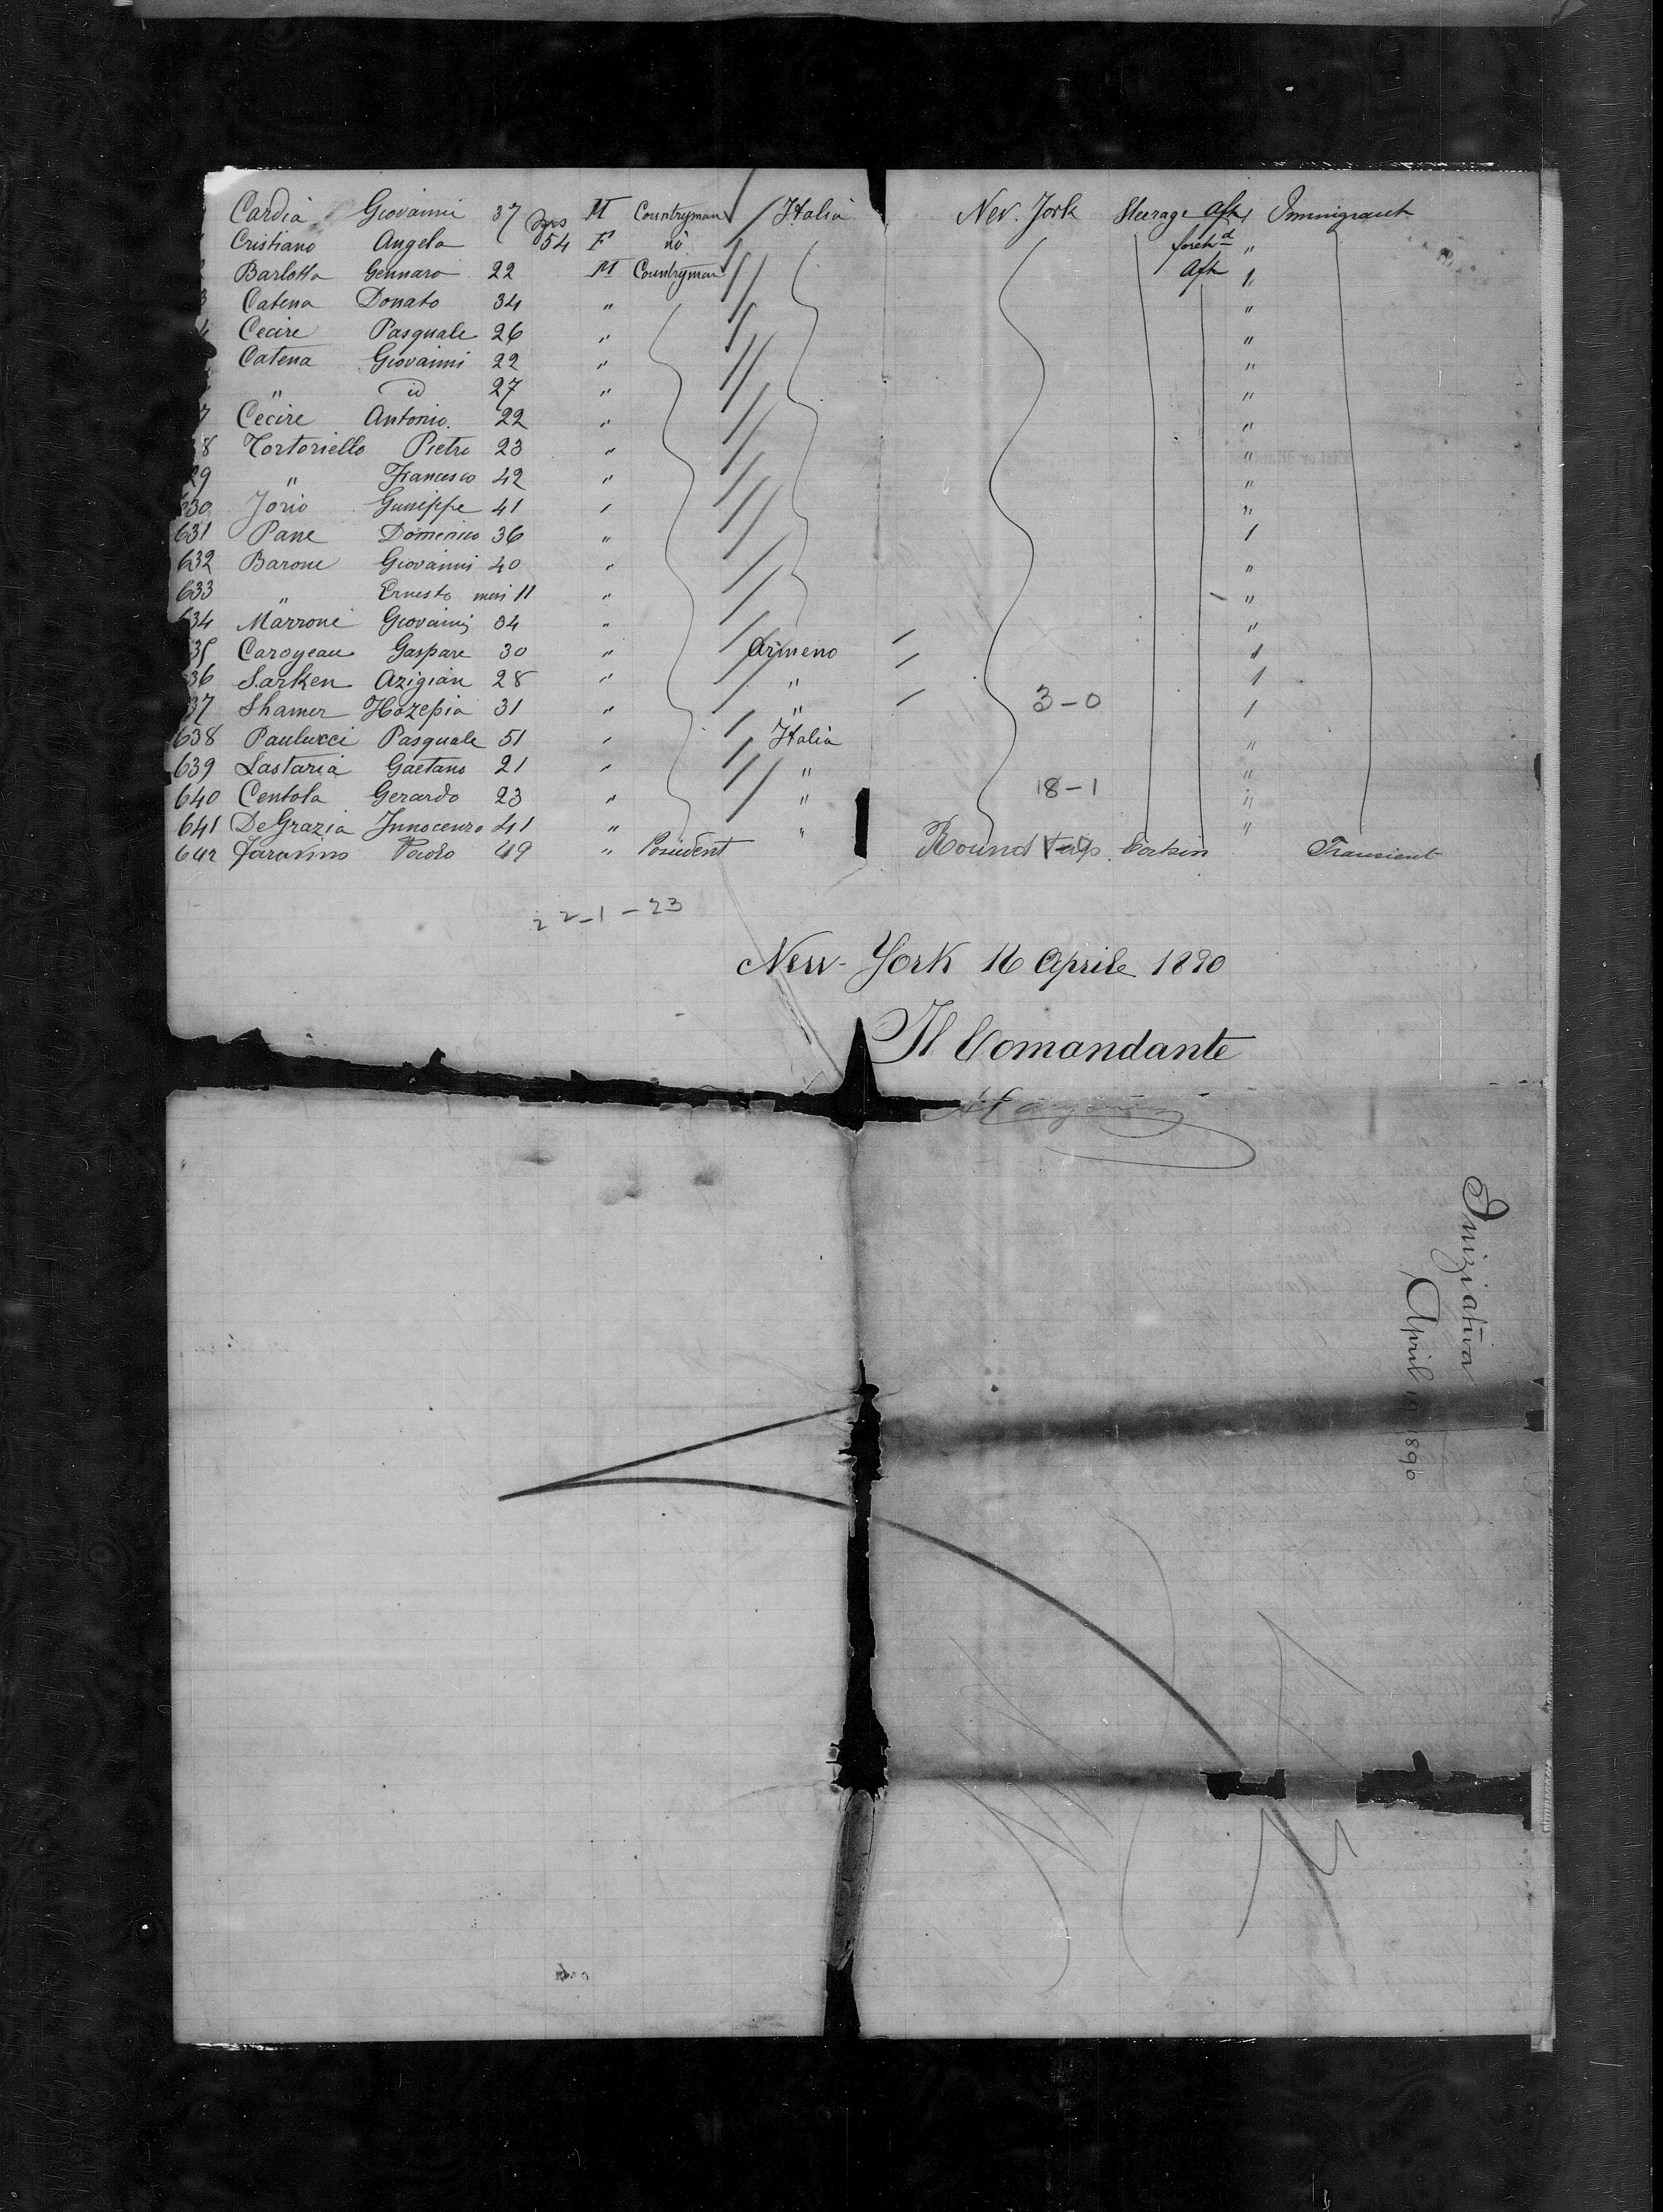 Cardia Giovanni 37 M Countryman Italia New. York Steerage Aft Immigrant
Cristiano Angela 54 F no foreh.d "
Barlotta Gennaro 22 M Countryman Aft "
3 Catena Donato 34 " "
4 Cecire Pasquale 26 " "
Catena Giovanni 22 " "
" id 27 " "
7 Cecire Antonio. 22 " "
8 Tortoriello Pietro 23 " "
29 " Francesco 42 " "
630 Jorio Guiseppe 41 " "
631 Pane Domenico 36 " "
632 Barone Giovanni 40 " "
633 " Ernesto mesi 11 " "
634 Marrone Giovanni 34 " "
35 Caroyean Gaspare 30 " Armeno "
36 Sarken Azigian 28 " " "
37 Shamer Hazepia 31 " " 3-0 "
638 Paulucci Pasquale 51 " Italia "
639 Lastaria Gaetano 21 " " "
640 Centola Gerardo 23 " " 18-1 "
641 DeGrazia Innocenzo 41 " " "
642 Paolo 49 " Round trip Transient
22-1-23
New-York 16 Aprile 1890
Il Comandante
Iniziativa
April 19 1890